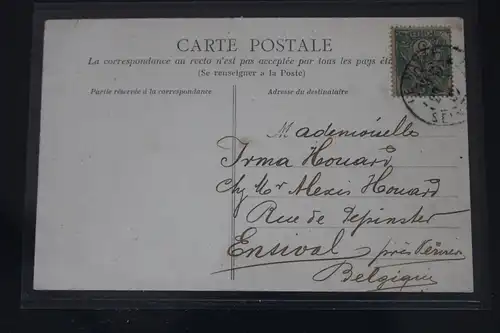 CARTE POSTALE
La correspondance au recto n'est pas acceptée par tous les pays
(Se renseigner a la Poste)
Partie réservée à la correspondance
Adresse du destinataire
Mademoiselle
Irma Houard
Chez Mr Alexis Houard
Rue de Pepinster
Ensival près
Belgique